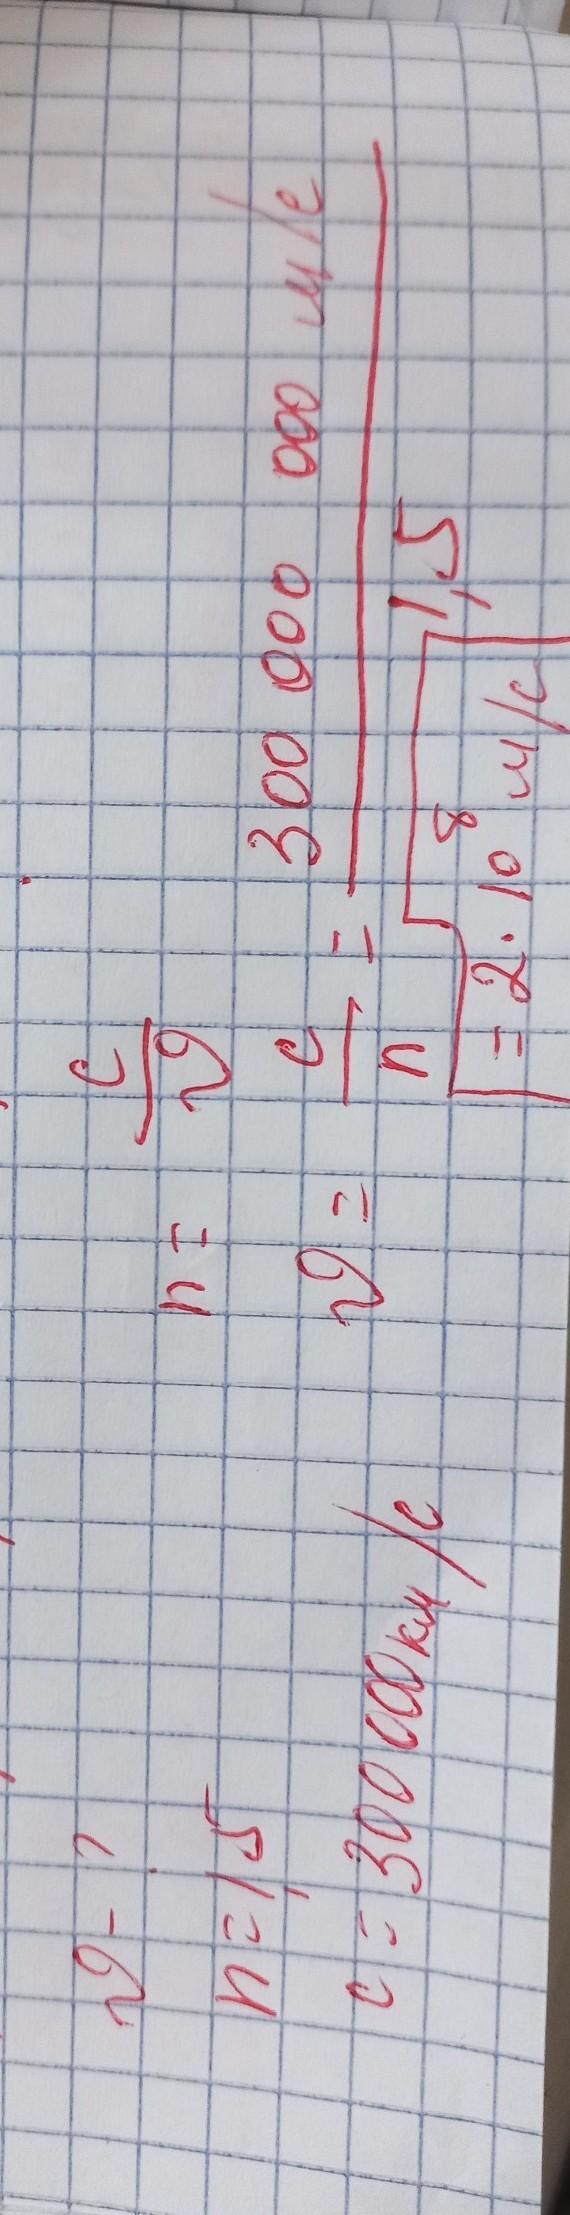 υ - ?
n = 1,5
c = 300 000 км/с
n = c/υ
υ = c/n = 300 000 000 м/с / 1,5
= 2 · 10⁸ м/с